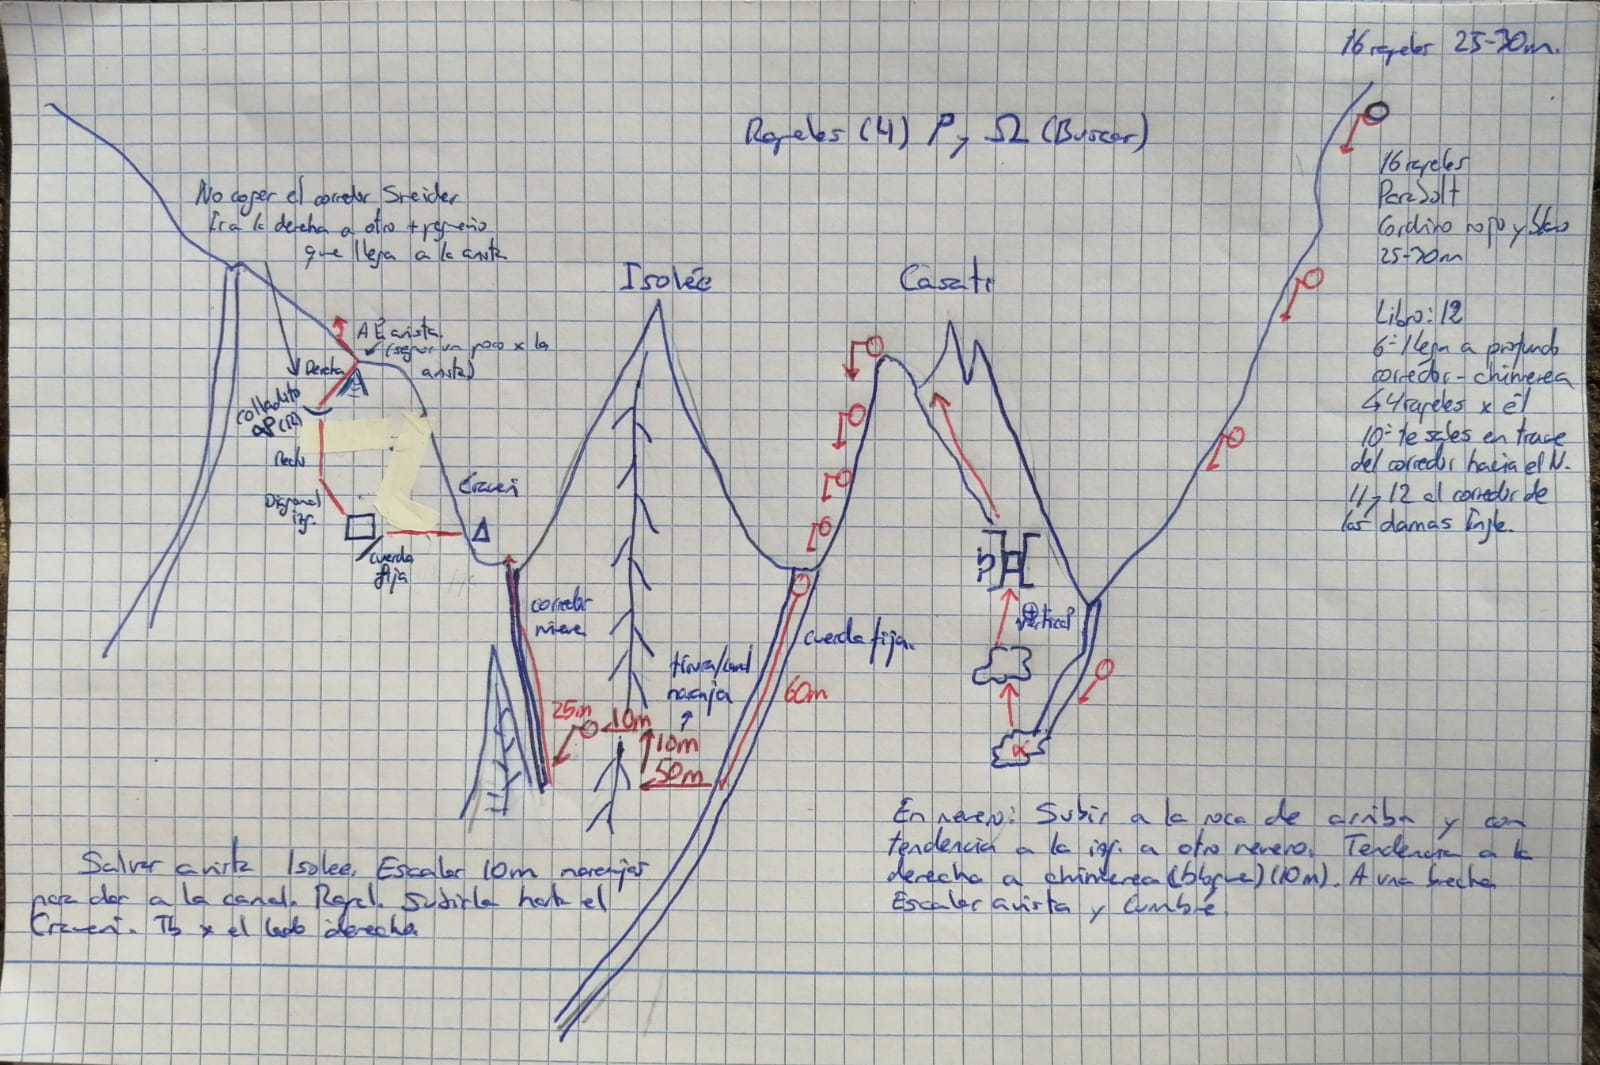 16 rapeles 25-30m.
Rapeles (4) P y Ω (Buscar)
No coger el corredor Sneider
Ir a la derecha a otro + pequeño
que llega a la arista
Isolée
Casati
16 rapeles
Parabolt
Cordino rojo y
25-30m
Libro: 12
6º llega a profundo
corredor-chimenea
↳ 4 rapeles x él
10º te sales en trave
del corredor hacia el N.
11 y 12 al corredor de
las damas Ingle.
A E arista.
(seguir un poco x la
arista)
Derecha
Colladito
Recto
Diagonal
izq.
cuerda
fija
Craveri
corredor
nieve
fisura/canal
naranja
25m
10m
10m
50m
cuerda fija.
60m
⊕
vertical
En nevero: Subir a la roca de arriba y con
tendencia a la izq. a otro nevero. Tendencia a la
derecha a chimenea (bloque) (10m). A una brecha
Escalar arista y Cumbre.
Salvar arista Isolee. Escalar 10m naranjas
para dar a la canal. Rapel. Subirla hasta el
Craveri. Tb x el lado derecha.